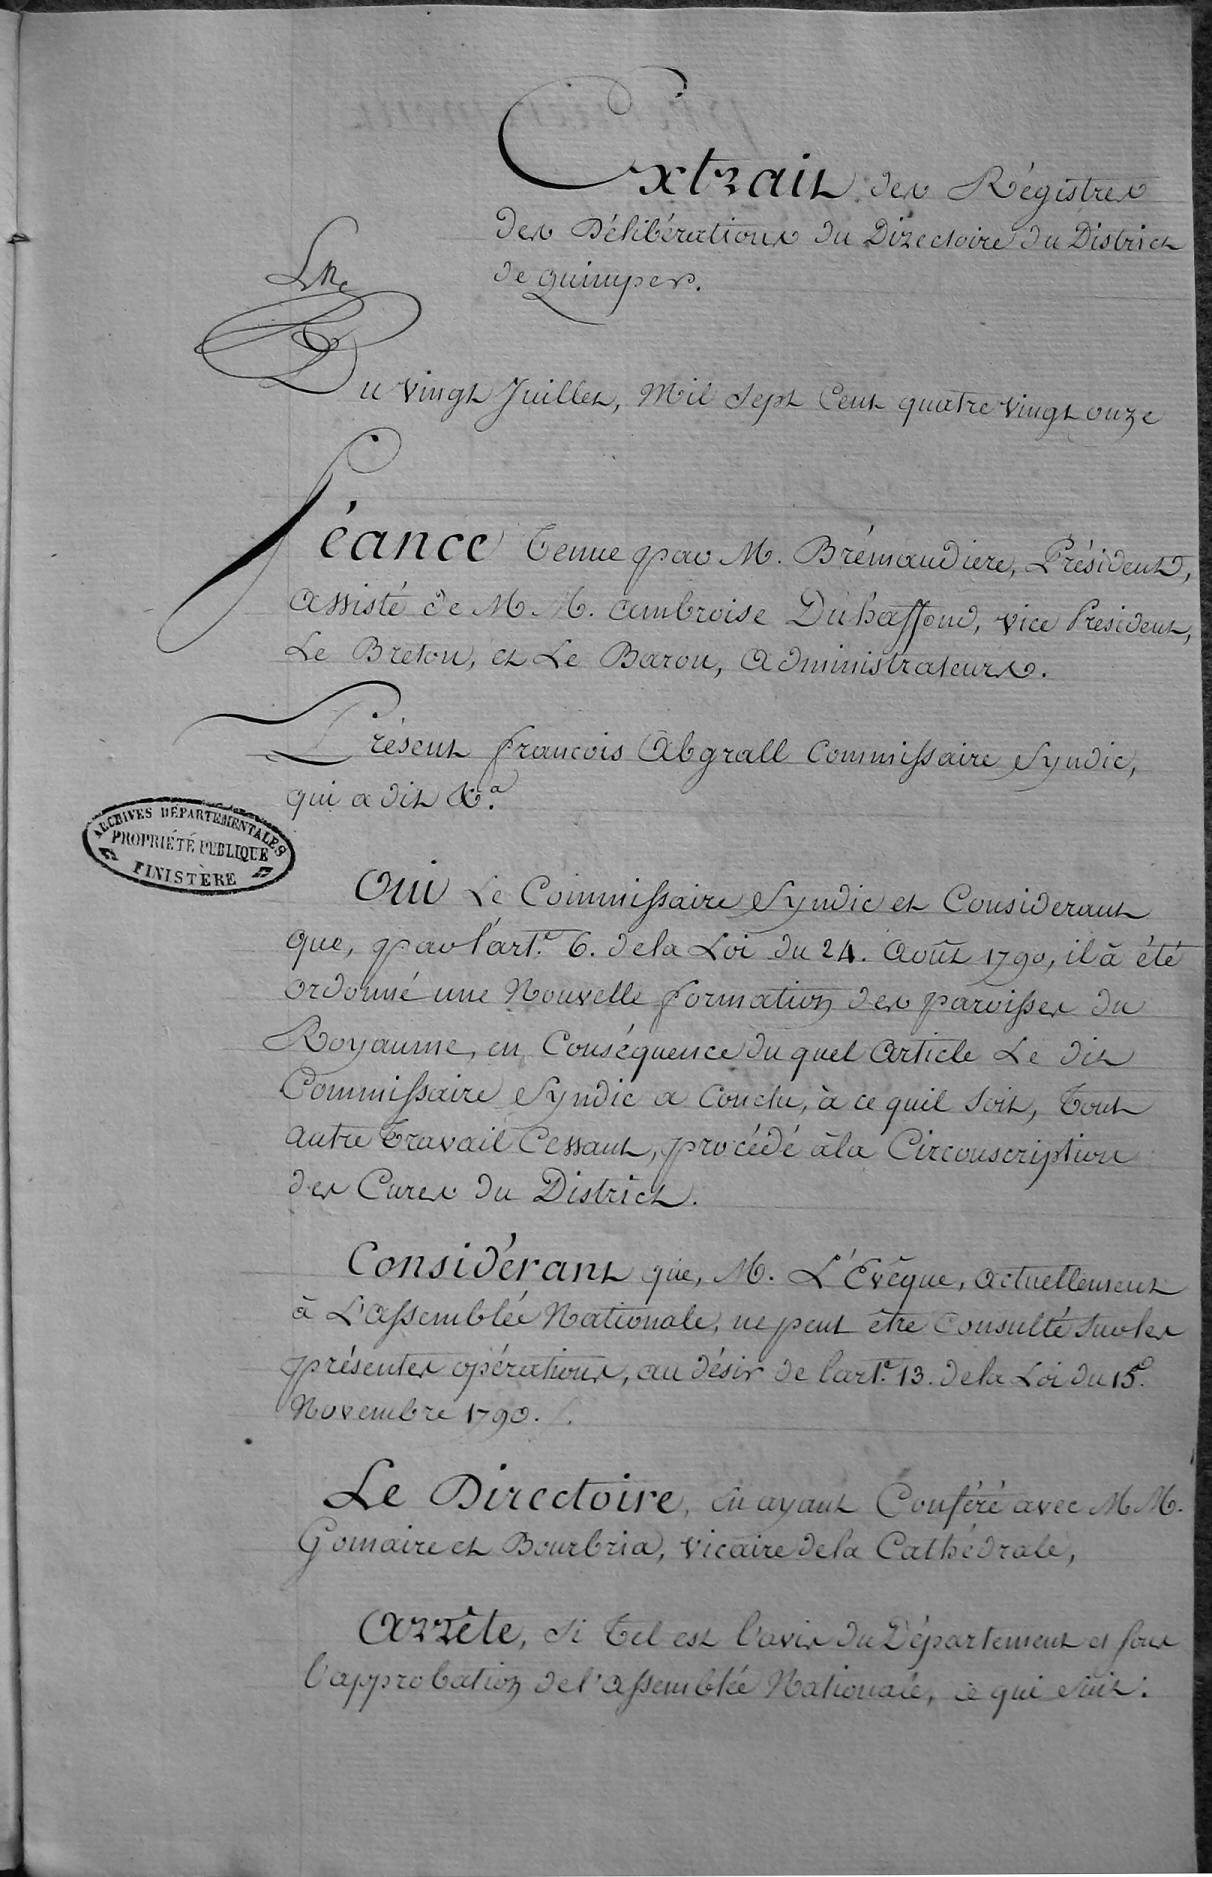 Extrait des Régistres
des Délibérations du Directoire du District
de quimper.
Du vingt Juillet, Mil Sept Cent quatre vingt onze
Séance Tenue par M. Brémaudiere, Président,
Assisté de M M. ambroise Duhaffond, vice Président,
Le Breton, et Le Baron, Administrateurs.
Présent françois Abgrall Commissaire Syndic,
qui a dit &a.
ARCHIVES DÉPARTEMENTALES
PROPRIÉTÉ PUBLIQUE
FINISTÈRE
Oui Le Commissaire Syndic et Considerant
que, par l'art.e 6. de la Loi du 24. Août 1790, il à été
ordonné une Nouvelle formation des paroisses du
Royaume, en Conséquence du quel Article Le dit
Commissaire Syndic a Conclu, à ce quil soit, Tout
autre Travail Cessant, procédé àla Circonscription
des Cures du District.
Considérant que, M. L'Evêque, actuellement
à L'assemblée Nationale, ne peut être Consulté sur les
présentes opérations, au désir de l'art.e 13. de la Loi du 15.
Novembre 1790.
Le Directoire, en ayant Conféré avec M M.
Gomaire et Bourbria, vicaire de la Cathédrale,
Arrête, Si Tel est l'avis du Département et sous
l'approbation de l'assemblée Nationale, ce qui suit: